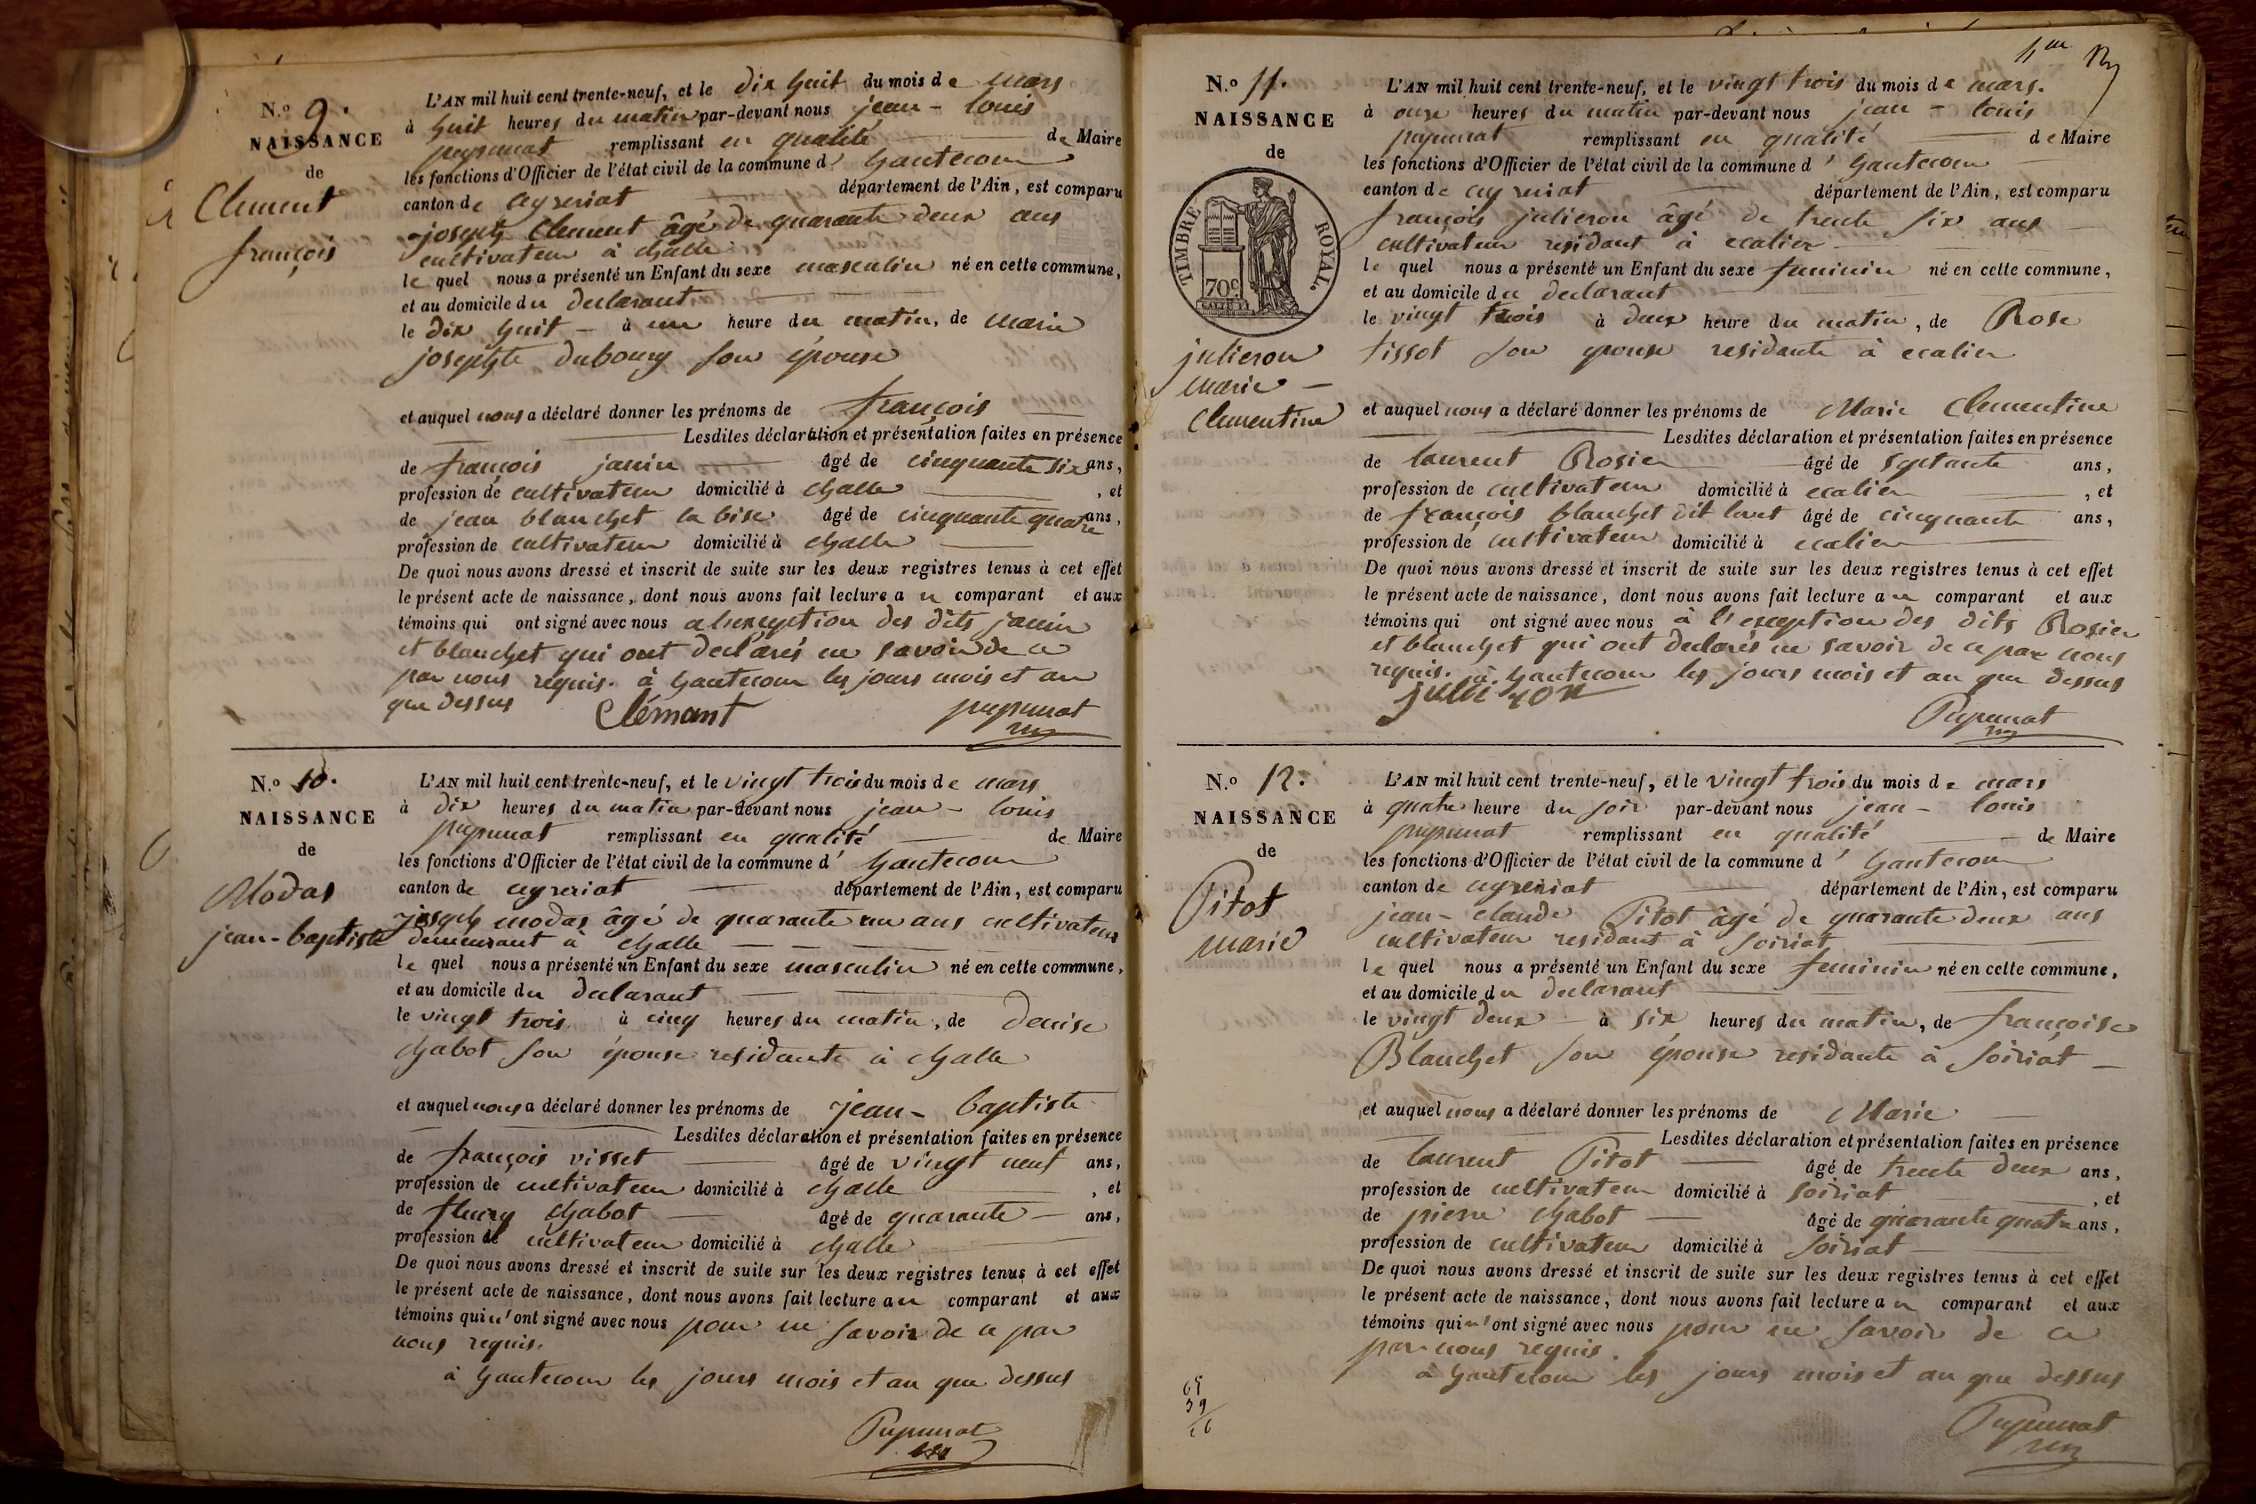 N.º 9.
NAISSANCE
de
Clement
françois
L'AN mil huit cent trente-neuf, et le dix huit du mois de mars
à huit heures du matin par-devant nous jean - louis
pupunat remplissant en qualité de Maire
les fonctions d'Officier de l'état civil de la commune d' hautecour
canton de ceyzeriat département de l'Ain, est comparu
joseph Clement âgé de quarante deux ans
cultivateur à challe
le quel nous a présenté un Enfant du sexe masculin né en cette commune,
et au domicile du declarant
le dix huit à une heure du matin, de marie
josephte dubourg son épouse
et auquel nous a déclaré donner les prénoms de françois
Lesdites déclaration et présentation faites en présence
de françois janin âgé de cinquante six ans,
profession de cultivateur domicilié à challe , et
de jean blanchet la bise âgé de cinquante quatre ans,
profession de cultivateur domicilié à challe
De quoi nous avons dressé et inscrit de suite sur les deux registres tenus à cet effet
le présent acte de naissance, dont nous avons fait lecture au comparant et aux
témoins qui ont signé avec nous a lexception des dits janin
et blanchet qui ont declarés ne savoir de ce
par nous requis. à hautecour les jours mois et an
que dessus Clémant pupunat
N.º 10.
NAISSANCE
de
Modas
jean-baptiste
L'AN mil huit cent trente-neuf, et le vingt trois du mois de mars
à dix heures du matin par-devant nous jean - louis
pupunat remplissant en qualité de Maire
les fonctions d'Officier de l'état civil de la commune d' hautecour
canton de ceyzeriat département de l'Ain, est comparu
joseph modas âgé de quarante un ans cultivateur
demeurant à challe
le quel nous a présenté un Enfant du sexe masculin né en cette commune,
et au domicile du declarant
le vingt trois à cinq heures du matin, de denise
chabot son épouse residante à challe
et auquel nous a déclaré donner les prénoms de jean - baptiste
Lesdites déclaration et présentation faites en présence
de françois visset âgé de vingt neuf ans,
profession de cultivateur domicilié à challe , et
de fleury chabot âgé de quarante ans,
profession de cultivateur domicilié à challe
De quoi nous avons dressé et inscrit de suite sur les deux registres tenus à cet effet
le présent acte de naissance, dont nous avons fait lecture au comparant et aux
témoins qui n'ont signé avec nous pour ne savoir de ce par
nous requis.
à hautecour les jours mois et an que dessus
Pupunat
N.º 11.
NAISSANCE
de
TIMBRE ROYAL.
70 c.
julieron
marie -
Clementine
L'AN mil huit cent trente-neuf, et le vingt trois du mois de mars.
à onze heures du matin par-devant nous jean - louis
pupunat remplissant en qualité de Maire
les fonctions d'Officier de l'état civil de la commune d' hautecour
canton de ceyzeriat département de l'Ain, est comparu
françois julieron âgé de trente six ans
cultivateur residant à ecalier
le quel nous a présenté un Enfant du sexe feminin né en cette commune,
et au domicile du declarant
le vingt trois à deux heure du matin, de Rose
tissot son epouse residante à ecalier
et auquel nous a déclaré donner les prénoms de Marie Clementine
Lesdites déclaration et présentation faites en présence
de laurent Rosier âgé de septante ans,
profession de cultivateur domicilié à ecalier , et
de françois blanchet dit louet âgé de cinquante ans,
profession de cultivateur domicilié à ecalier
De quoi nous avons dressé et inscrit de suite sur les deux registres tenus à cet effet
le présent acte de naissance, dont nous avons fait lecture au comparant et aux
témoins qui ont signé avec nous à l'exception des dits Rosier
et blanchet qui ont declarés ne savoir de ce par nous
requis. à hautecour les jours mois et an que dessus
julieron
Pupunat
N.º 12.
NAISSANCE
de
Pitot
marie
L'AN mil huit cent trente-neuf, et le vingt trois du mois de mars
à quatre heure du soir par-devant nous jean - louis
pupunat remplissant en qualité de Maire
les fonctions d'Officier de l'état civil de la commune d' hautecour
canton de ceyzeriat département de l'Ain, est comparu
jean - claude Pitot âgé de quarante deux ans
cultivateur residant à soiriat
le quel nous a présenté un Enfant du sexe feminin né en cette commune,
et au domicile du declarant
le vingt deux à six heures du matin, de françoise
Blanchet son épouse residante à soiriat
et auquel nous a déclaré donner les prénoms de Marie
Lesdites déclaration et présentation faites en présence
de laurent Pitot âgé de trente deux ans,
profession de cultivateur domicilié à soiriat , et
de pierre chabot âgé de quarante quatre ans,
profession de cultivateur domicilié à soiriat
De quoi nous avons dressé et inscrit de suite sur les deux registres tenus à cet effet
le présent acte de naissance, dont nous avons fait lecture au comparant et aux
témoins qui n'ont signé avec nous pour ne savoir de ce
par nous requis.
à hautecour les jours mois et an que dessus
Pupunat